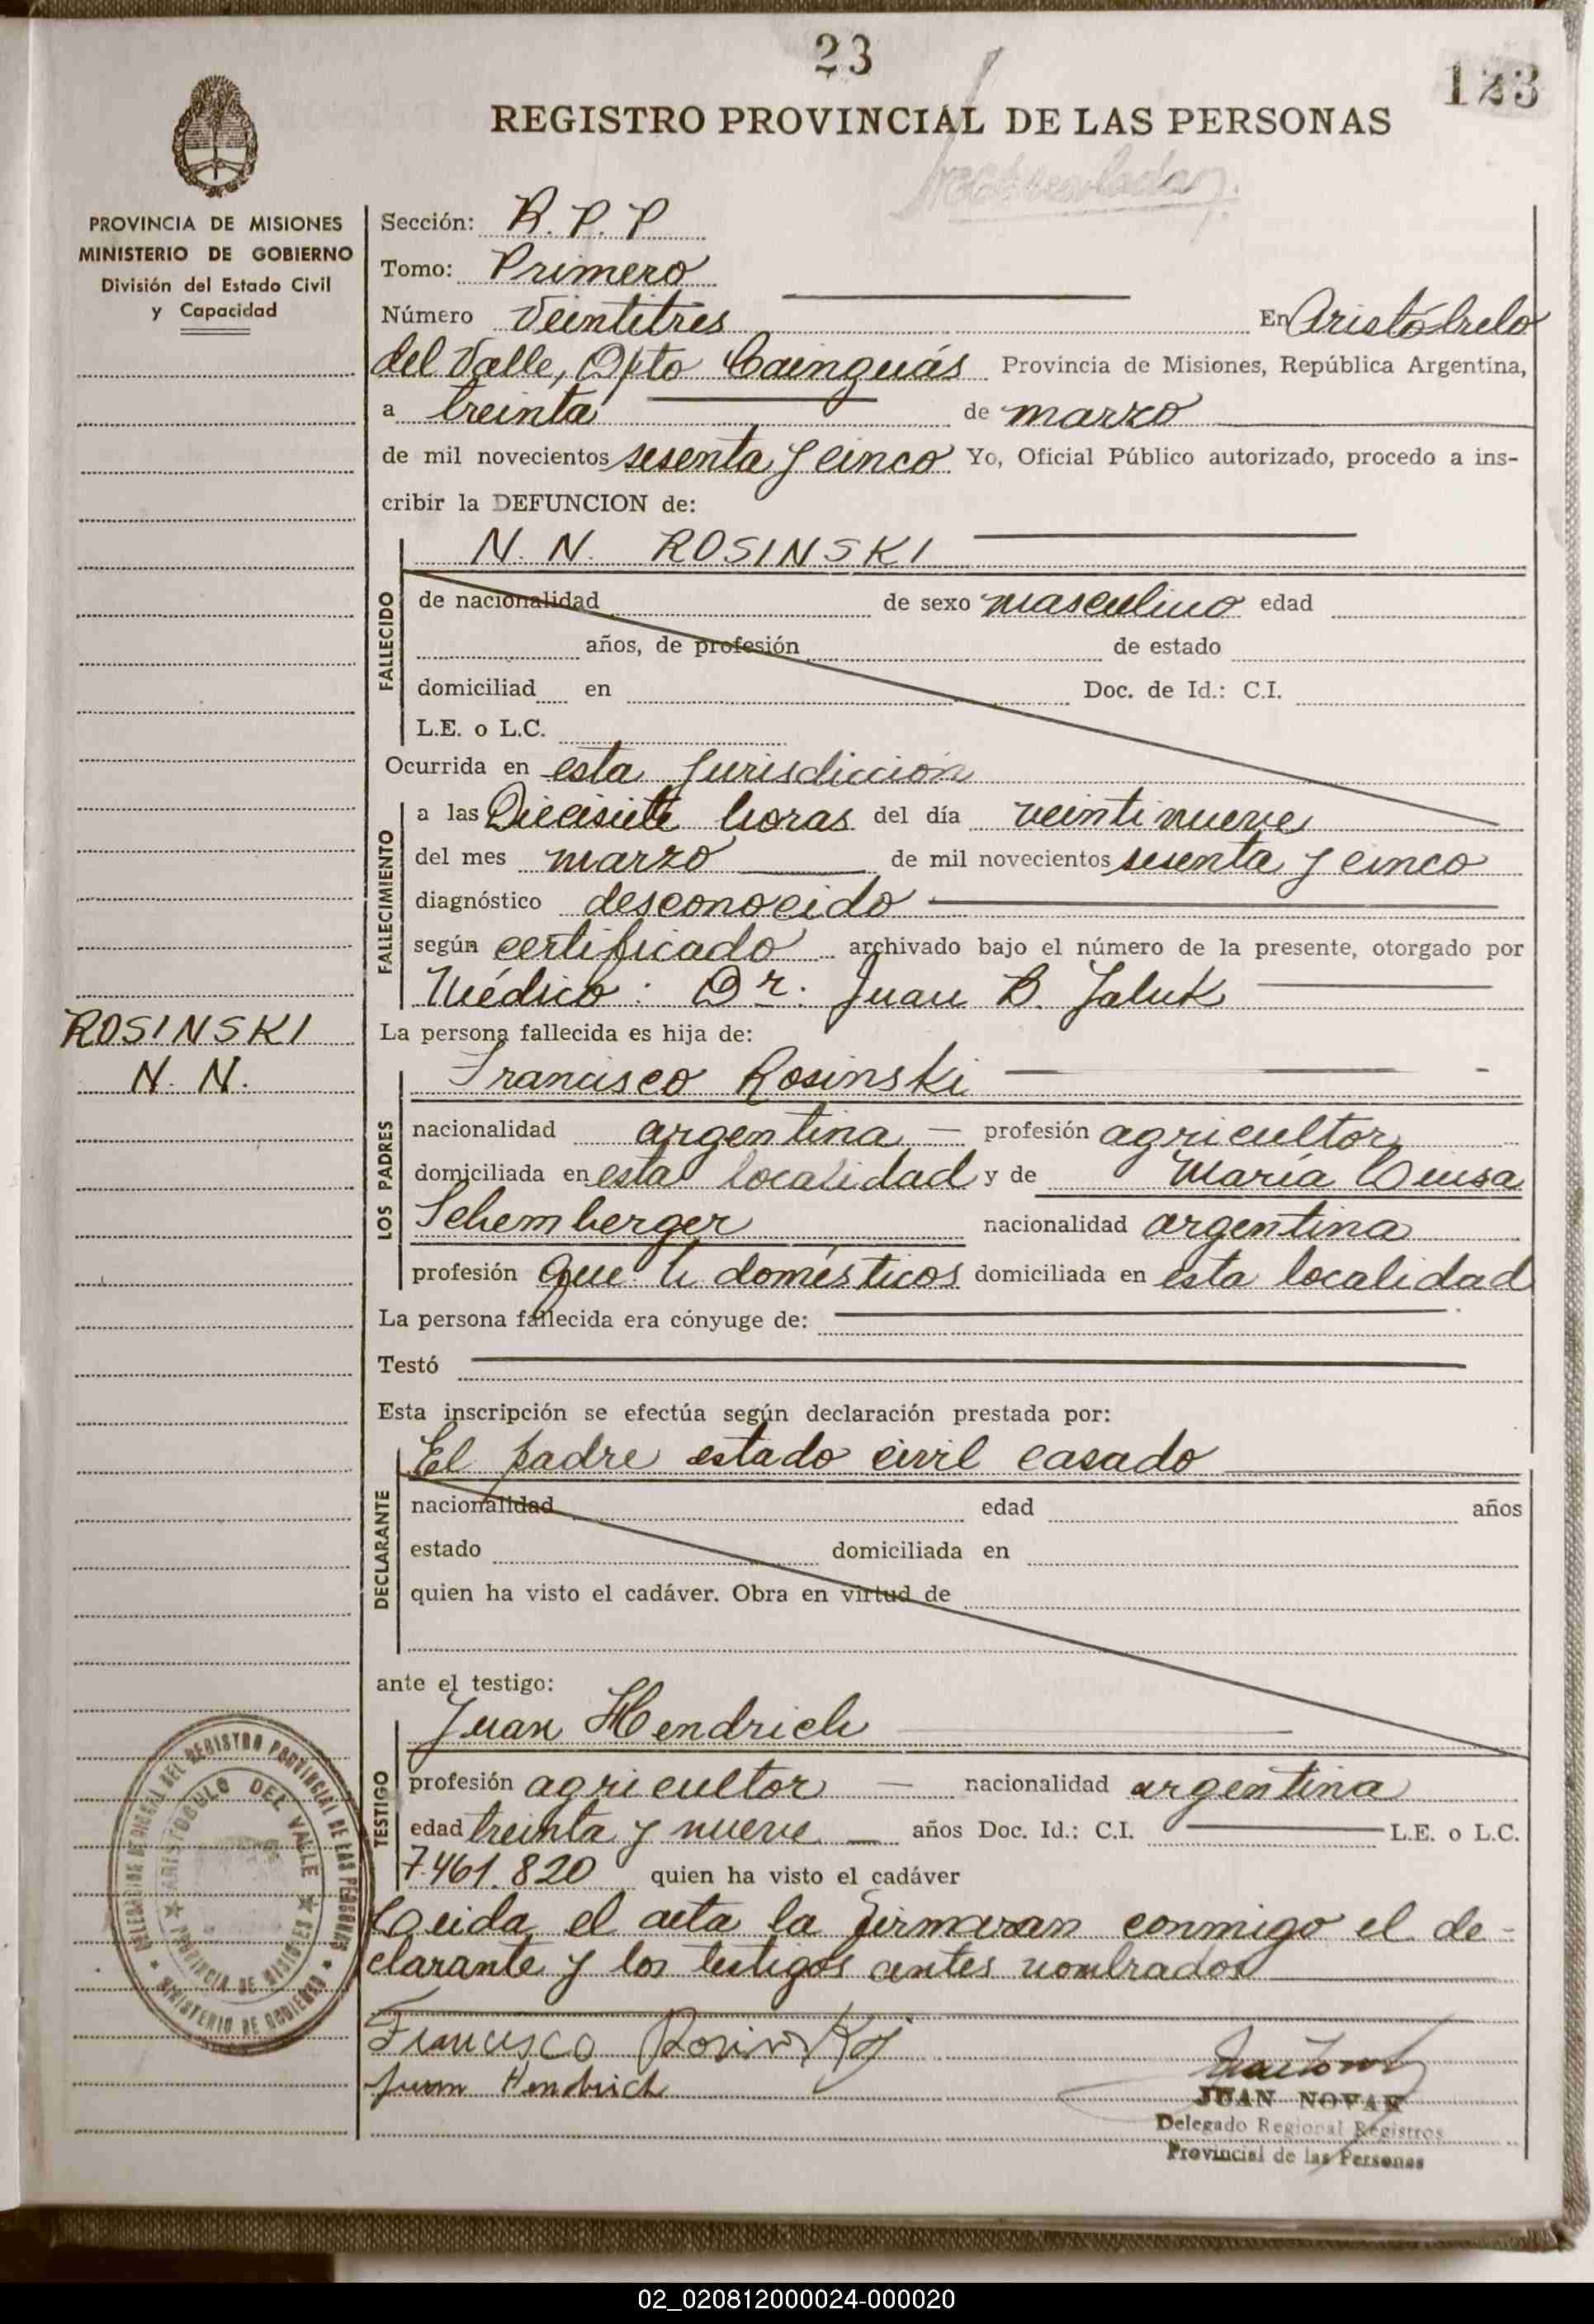 23
123
REGISTRO PROVINCIAL DE LAS PERSONAS
PROVINCIA DE MISIONES
MINISTERIO DE GOBIERNO
División del Estado Civil
y Capacidad
Sección: R. P. P
Tomo: Primero
Número Veintitres En Aristóbulo
del Valle, Dpto Cainguás Provincia de Misiones, República Argentina,
a treinta de marzo
de mil novecientos sesenta y cinco Yo, Oficial Público autorizado, procedo a ins-
cribir la DEFUNCION de:
N. N. ROSINSKI
FALLECIDO
de nacionalidad de sexo masculino edad
años, de profesión de estado
domiciliad en Doc. de Id.: C.I.
L.E. o L.C.
Ocurrida en esta Jurisdicción
FALLECIMIENTO
a las Diecisiete horas del día veintinueve
del mes marzo de mil novecientos sesenta y cinco
diagnóstico desconocido
según certificado archivado bajo el número de la presente, otorgado por
Médico: Dr. Juan B. Jaluk
ROSINSKI
N. N.
La persona fallecida es hija de:
LOS PADRES
Francisco Rosinski
nacionalidad argentina - profesión agricultor
domiciliada en esta localidad y de María Luisa
Schemberger nacionalidad argentina
profesión que h domésticos domiciliada en esta localidad
La persona fallecida era cónyuge de:
Testó
Esta inscripción se efectúa según declaración prestada por:
DECLARANTE
El padre estado civil casado
nacionalidad edad años
estado domiciliada en
quien ha visto el cadáver. Obra en virtud de
ante el testigo:
TESTIGO
Juan Hendrich
profesión agricultor - nacionalidad argentina
edad treinta y nueve años Doc. Id.: C.I. L.E. o L.C.
7.461.820 quien ha visto el cadáver
Leida el acta la firmaran conmigo el de-
clarante y los testigos antes nombrados
Francisco Rosinski
Juan Hendrich
JUAN NOVAK
Delegado Regional Registros
Provincial de las Personas
DEL REGISTRO PROVINCIAL DE LAS PERSONAS
MINISTERIO DE GOBIERNO
ARISTOBULO DEL VALLE
PROVINCIA DE MISIONES
02_020812000024-000020